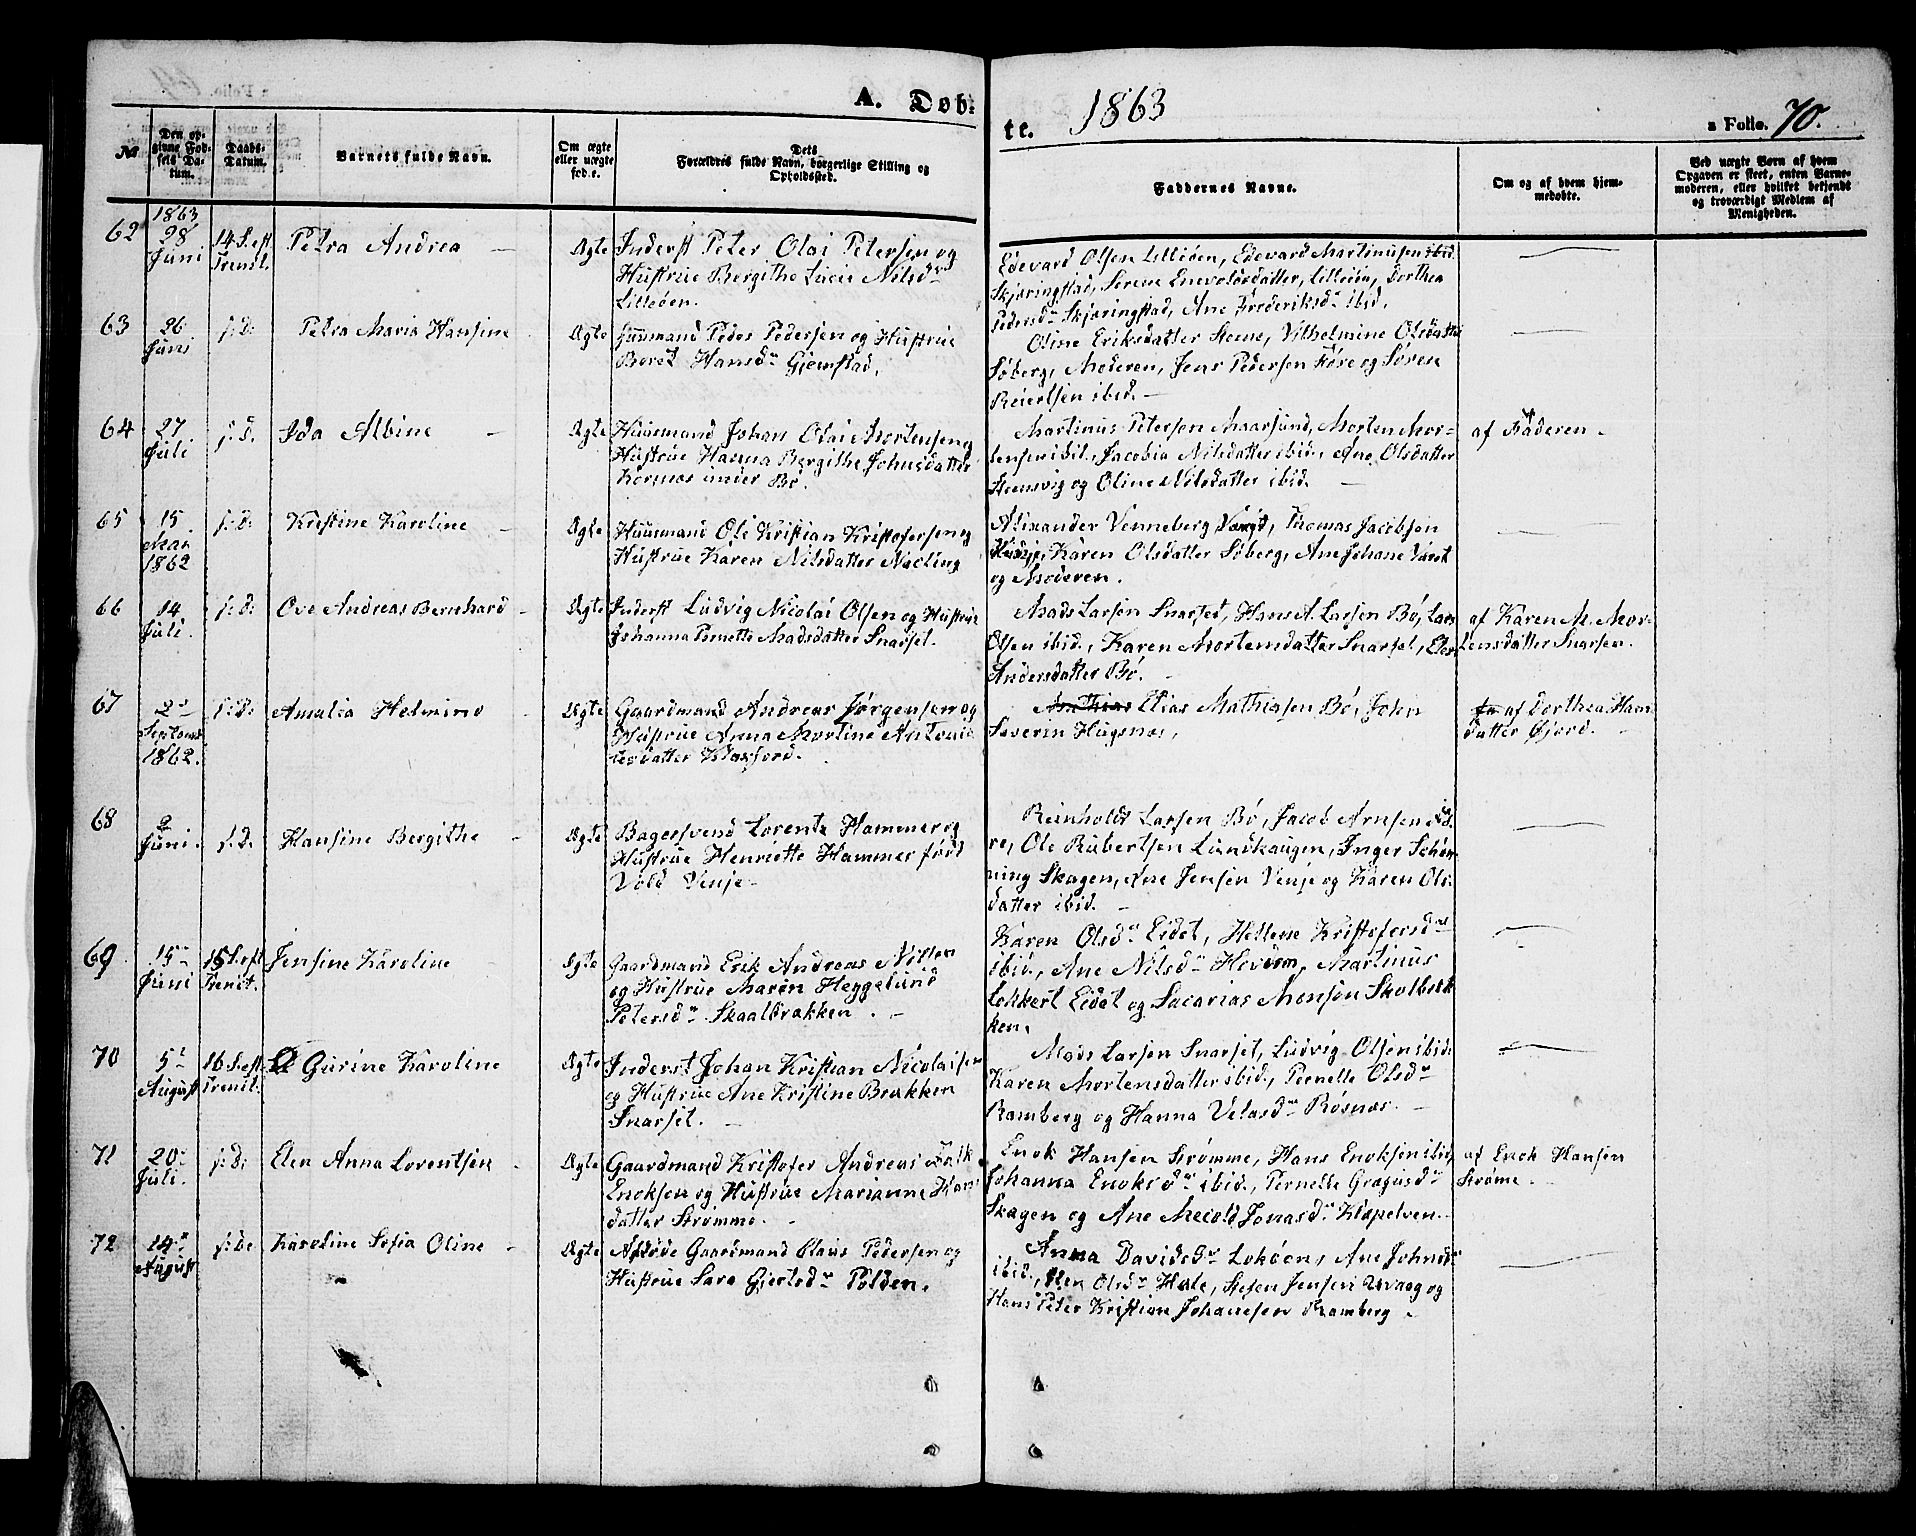 A. Døb-
te.
1863
a Folio. 70.
№
Den op-
givne Fød-
sels Da-
tum.
Daabs-
Datum.
Barnets fulde Navn.
Om ægte
eller uægte
fød.e.
Dets
Forældres fulde Navn, borgerlige Stilling og
Opholdssted.
Faddernes Navne.
Om og af hvem hjem-
medøbte.
Ved uægte Børn af hvem
Opgaven er skeet, enten Barne-
moderen, eller hvilket bekjendt
og troværdigt Medlem af
Menigheden.
62
1863
28
Juni
14 S. eft
Trenit.
Petra Andrea
Ægte
Inderst Peter Olai Petersen og
Hustrue Bergithe Lucie Nilsdr
Lilleøen.
Edevard Olsen Lilleøen, Edevard Martinusen ibid.
Skjæringstad, Serene Enevoldsdatter, Lilleöen, Dorthea
Pedersdr Skjæringstad, Ane Frederiksdr ibid.
63
26
Juni
s: d.
Petra Maria Hansine
Ægte
Huusmand Peder Pedersen og Hustrue
Beret Hansdr Gjemstad.
Oline Eriksdatter Steene, Vilhelmine Olsdatter
Söberg, Moderen, Jens Pedersen Före og Sören
Reiertsen ibid.
64
27
Juli
s: d.
Ida Albine
Ægte
Huusmand Johan Olai Mortensen og
Hustrue Hanna Bergithe Johnsdatter
Kornæs under Bø.
Martinus Petersen Maarsund, Morten Mor-
tensen ibid., Jacobia Nilsdatter ibid., Ane Olsdatter
Steensvig og Oline Nilsdatter ibid.
af Faderen.
65
15
Mai
1862
s: d:
Kristine Karoline
Ægte
Huusmand Ole Kristian Kristofersen og
Hustrue Karen Nilsdatter Nerling
Alixander Venneberg Vaagt, Thomas Jacobsen
Karen Olsdatter Söberg, Ane Johane
og Moderen.
66
14
Juli.
s: d:
Ove Andreas Bernhard
Ægte
Inderst Ludvig Nicolai Olsen og Hustrue
Johanna Pernette Madsdatter Snarset.
Mads Larsen Snarset, Hans A. Larsen Bö, Lars
Olsen ibid., Karen Mortensdatter Snarset, Elen
Andersdatter Bö.
af Karen M. Mor-
tensdatter Snarsen.
67
2
Septembr
1862.
s: d:
Amalia Helmine
Ægte
Gaardmand Andreas Jørgensen og
Hustrue Anna Martine Antoni
usdatter Klaxfjord.
Mathias Elias Mathiasen Bö, John
Severin Hugsnæs,
af Dorthea Hans
datter Øjord.
68
2
Juni.
s. d.
Hansine Bergithe
Ægte
Bagersvend Lorents Hammer og
Hustrue Henriette Hammer född
Vold Venje.
Reinholdt Larsen Bö, Jacob Arnsen
re, Ole Rubertsen Lundhaugen, Inger Schøn-
ning Skagen, Ane Jensen Venje og Karen Ols-
datter ibid.
69
15
Juni
15 S. eft
Trenit.
Jensine Karoline
Ægte
Gaardmand Erik Andreas Nilsen
og Hustrue Maren Heggelund
Petersdr Skaalbrækken.
Karen Olsdr Eidet, Hellene Kristofersdr
ibid., Ane Nilsdr Hovden, Martinus
Lokkert Eidet og Sacarias Monsen Skolbræk
ken.
70
5
August
16 S. eft
Trenit.
Gurine Karoline
Ægte
Inderst Johan Kristian Nicolaisen
og Hustrue Ane Kristine Brækken
Snarset.
Mads Larsen Snarset, Ludvig Olsen ibid.
Karen Mortensdatter ibid., Pernelle Olsdr
Ramberg og Hanna Velasdr Rösnæs.
71
20
Juli.
s: d:
Elen Anna Lorentsen
Ægte
Gaardmand Kristofer Andreas Falk
Enoksen og Hustrue Marianne Hans
datter Strømme.
Enok Hansen Strømme, Hans Enoksen ibid,
Johanna Enoksdr ibid., Pernelle Gregusdr
Skagen og Ane Mecold Jonasdr Klæpelven.
af Enok Hansen
Strøme.
72
14
August
s: d:
Karoline Sofia Oline
Ægte
Afdøde Gaardmand Olaus Pedersen og
Hustrue Sara Giertsdr Polden.
Anna Davidsdr Lokøen, Ane Johnsdr
ibid., Elen Olsdr Hole, Stefen Jensen Uvaag og
Hans Peter Kristian Johansen Ramberg.